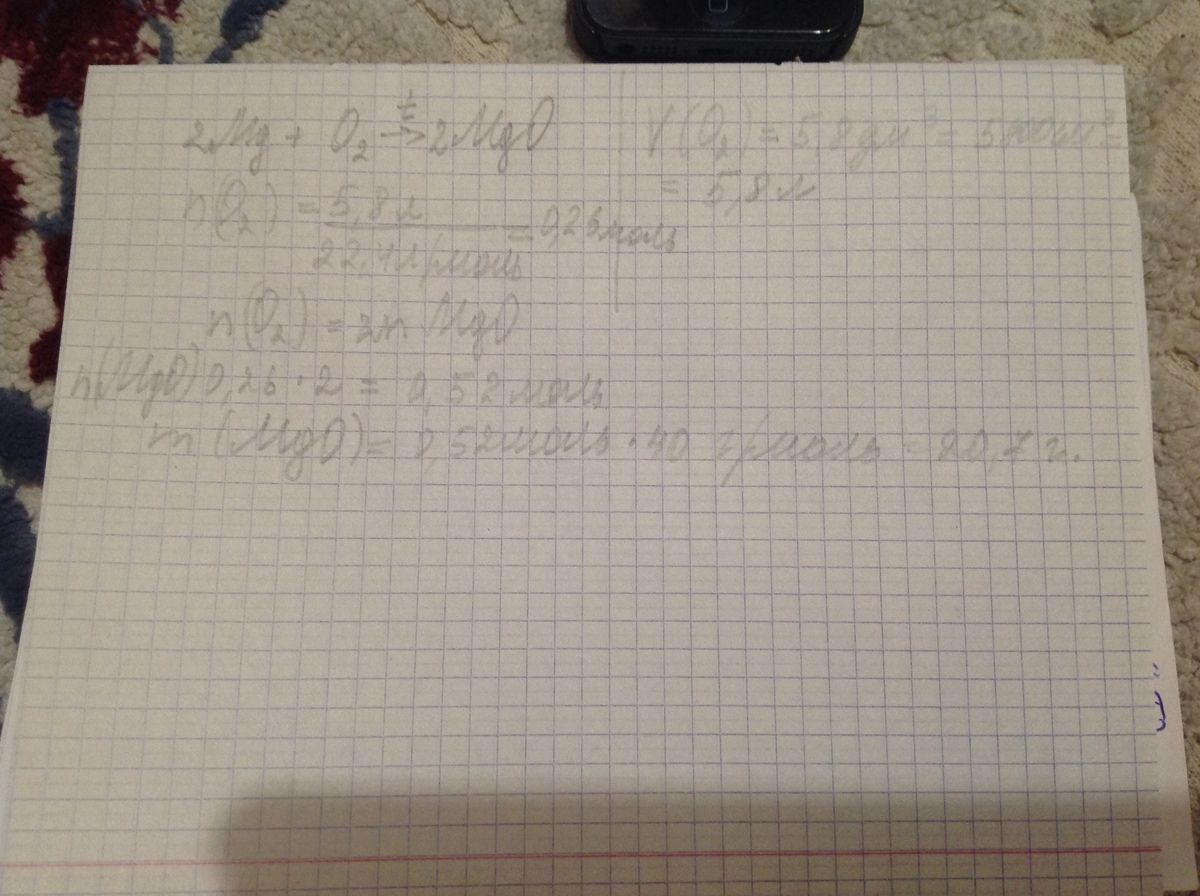 2Mg + O₂ →ᵗ 2MgO
V(O₂) = 5,8 дм³ = 5800 см³ =
= 5,8 л
n(O₂) = 5,8 л / 22,4 л/моль = 0,26 моль
n(O₂) = 2n MgO
n(MgO) 0,26 · 2 = 0,52 моль
m (MgO) = 0,52 моль · 40 г/моль = 20,7 г.